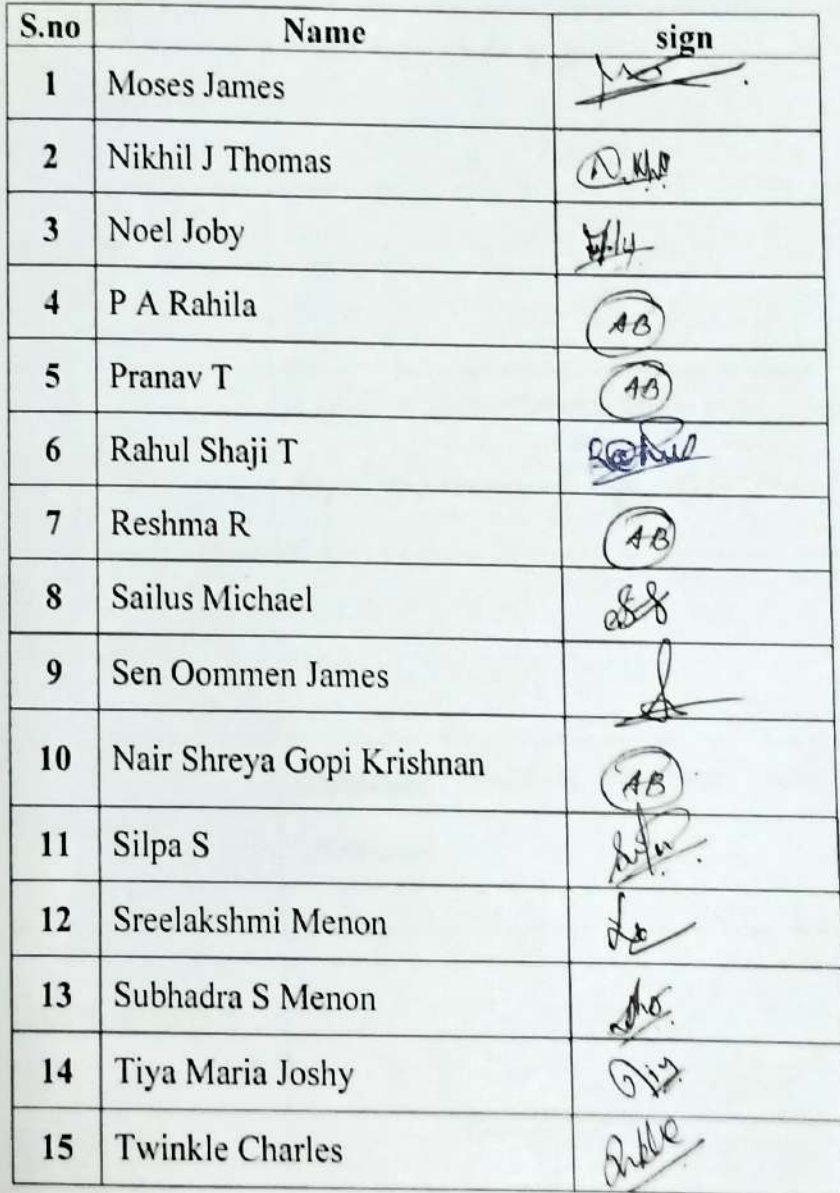 S.no Name sign
1 Moses James
2 Nikhil J Thomas
3 Noel Joby
4 P A Rahila AB
5 Pranav T AB
6 Rahul Shaji T
7 Reshma R AB
8 Sailus Michael
9 Sen Oommen James
10 Nair Shreya Gopi Krishnan AB
11 Silpa S
12 Sreelakshmi Menon
13 Subhadra S Menon
14 Tiya Maria Joshy
15 Twinkle Charles